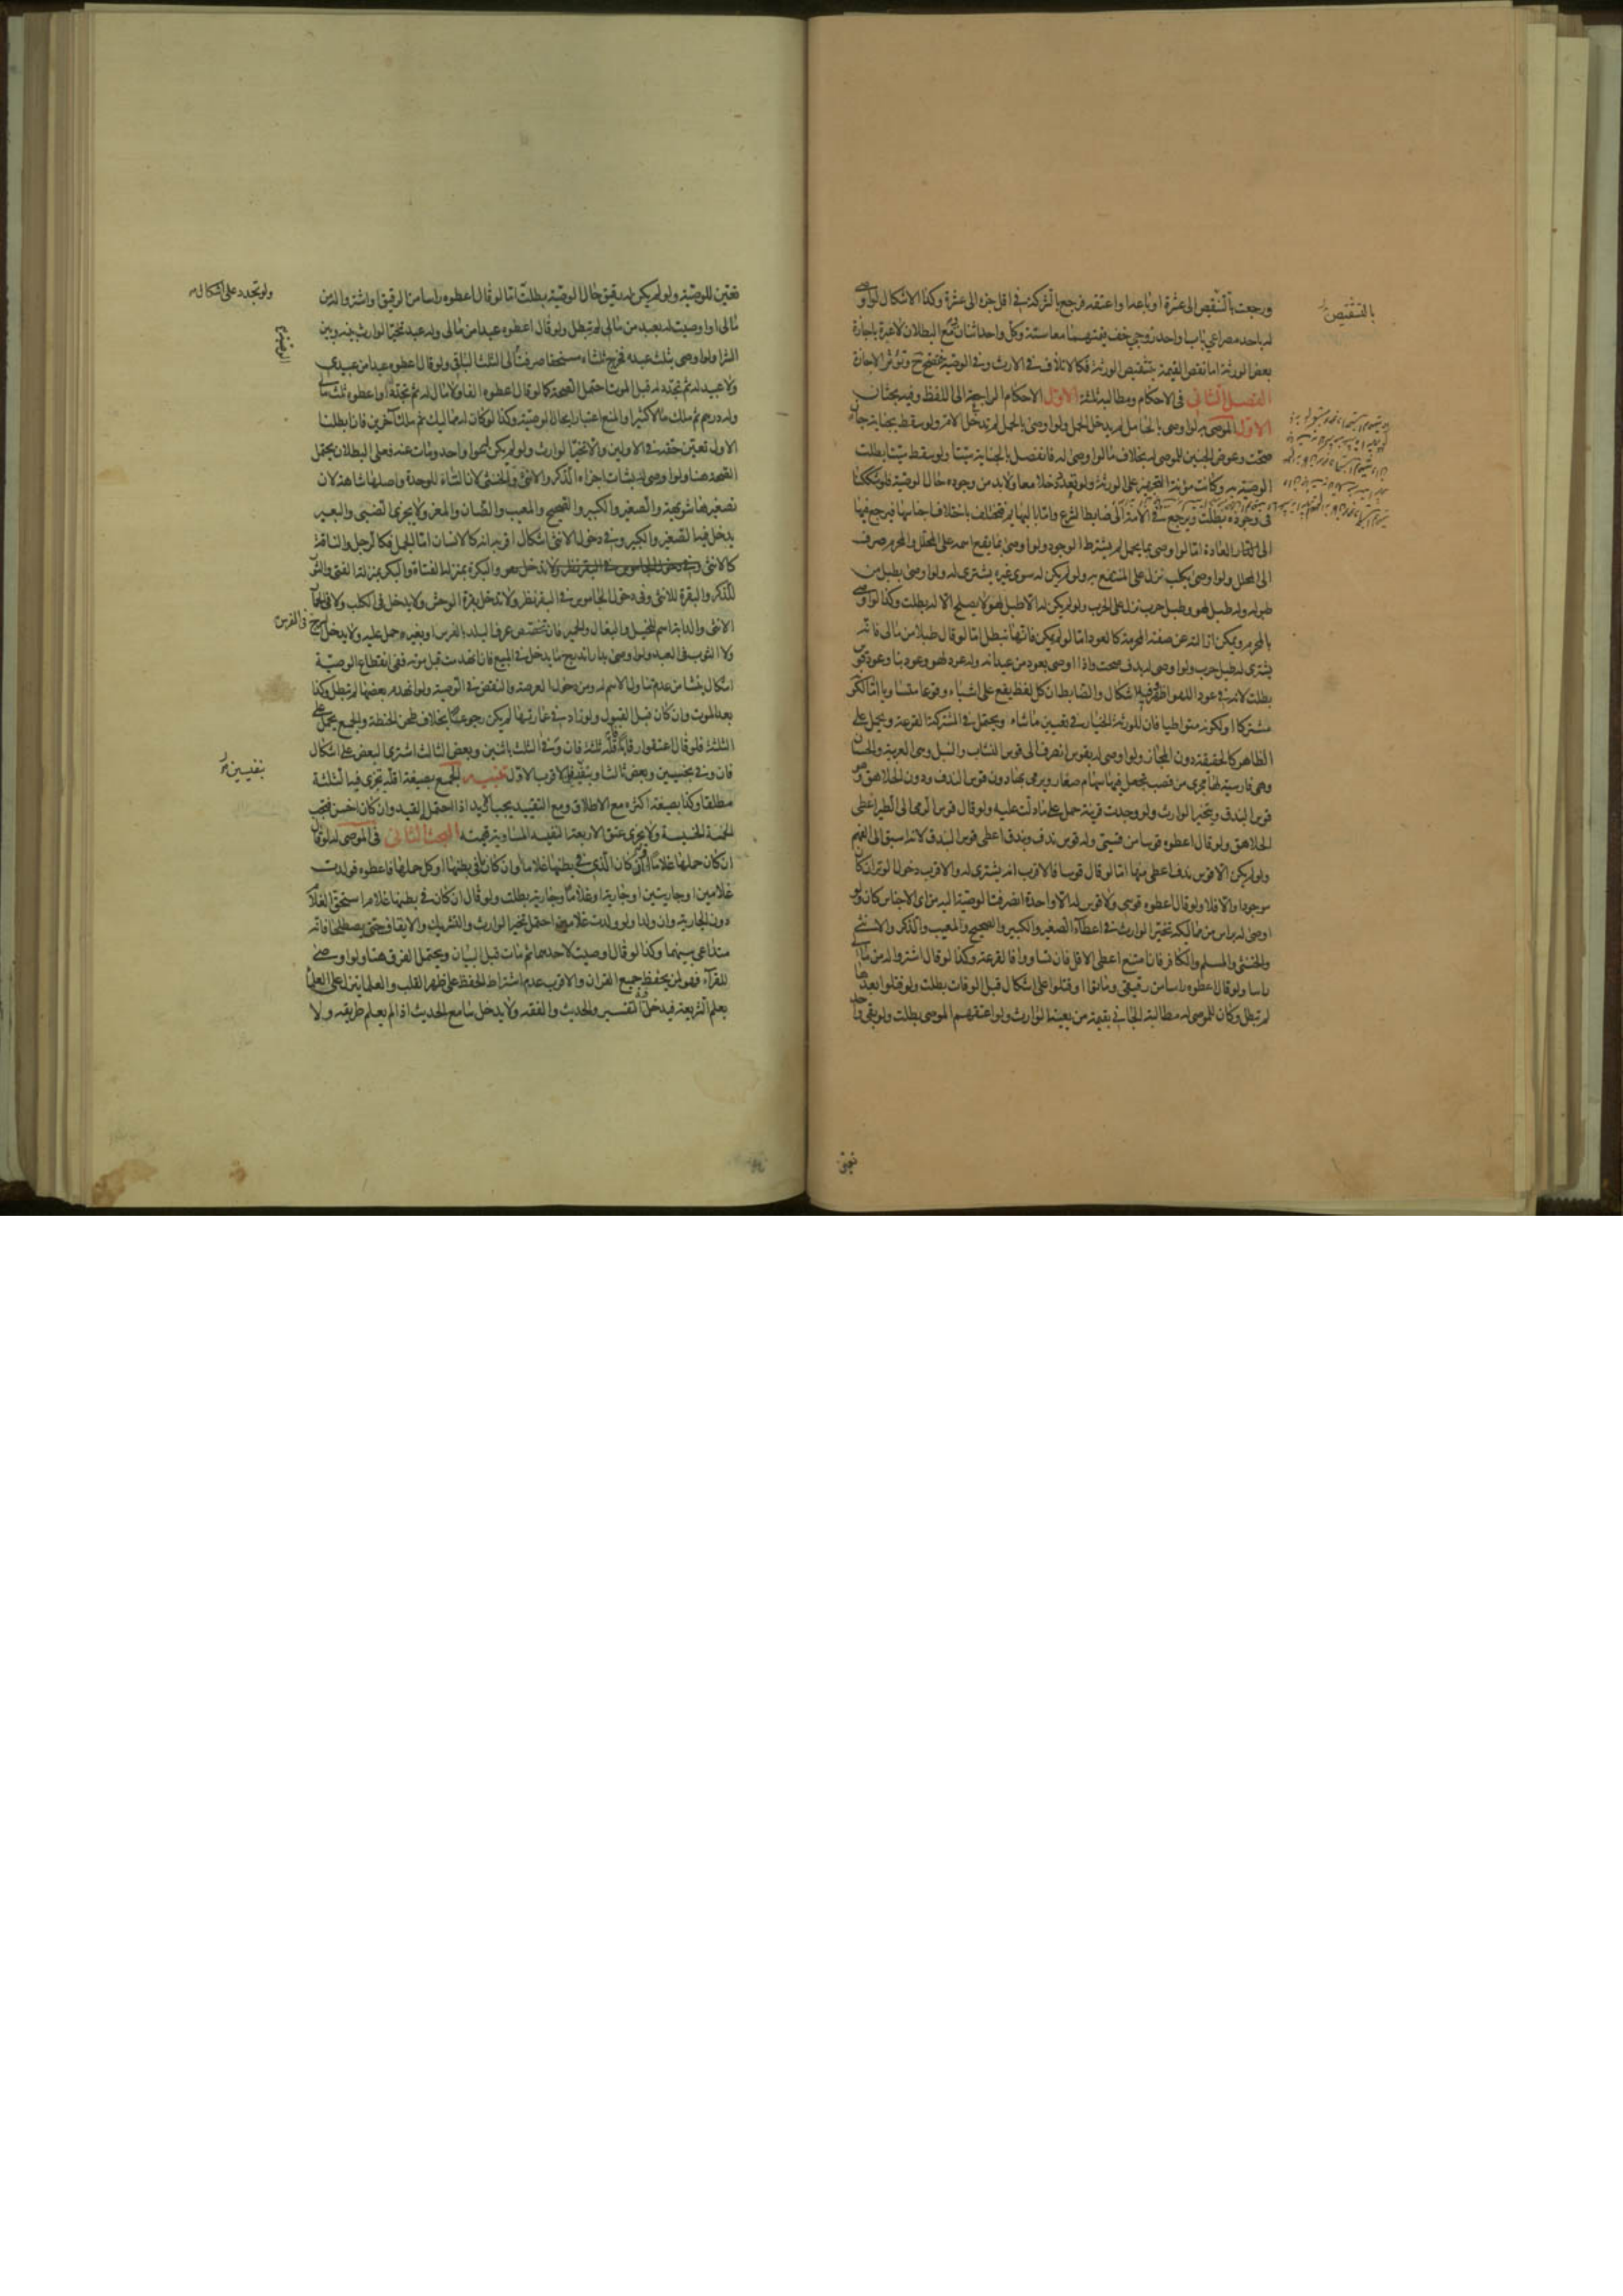 ورجعت بالتنقيص الى عشرة او باعدا واعتقد فرجع بالشركة في اقل جزء الى عشرة وكذا الاشكال لو اوصى
له باحد مصراعي باب او احد زوجي خف قيمتهما معا ستة وكل واحد اثنان مع البطلان لا عبرة باجازة
بعض الورثة اما نقص القيمة بتنقيص الورثة فكالاتلاف في الارث وفي الوصية وتوثر الاجازة
الفصل الثاني في الاحكام ومطالبه ثلثة الاول الاحكام الراجعة الى اللفظ وفيه بحثان
الاول الموصى به لو اوصى بالحامل لم يدخل الحمل ولو اوصى بالحمل لم تدخل الام ولو سقط بجناية جان
صحت وعوض الجنين للموصى له بخلاف ما لو اوصى له فانفصل بالجناية ميتا ولو سقط ميتا بطلت
الوصية به وكانت مؤنة التجهيز على الورثة ولو تعدد دخلا معا ولا بد من وجوده حال الوصية فلو شككنا
في وجوده بطلت ويرجع في الامة الى ضابط الشرع واما البهايم فتختلف باختلاف اجناسها فيرجع فيها
الى العادة اما لو اوصى بما يحمل لم يشترط الوجود ولو اوصى بما يقع اسمه على المحلل والمحرم صرف
الى المحلل ولو اوصى بكلب نزل على المنتفع به ولو لم يكن له سوى غيره يشترى له ولو اوصى بطبل من
طبوله وله طبل لهو وطبل حرب نزل على الحرب ولو لم يكن له الا طبل لهو لا يصلح الا له بطلت وكذا لو اوصى
بالمحرم ويمكن ازالته عن صفته المحرمة كالعود اما لو لم يكن فانها تبطل اما لو قال طبلا من مالي فانه
يشترى له طبل حرب ولو اوصى له بدف صحت واذا اوصى بعود من عيدانه وله عود لهو وعود بنا وعود قوس
بطلت لانه في عود اللهو اظهر وفيه اشكال والضابط ان كل لفظ يقع على اشياء وقوعا متساويا اما لكونه
مشتركا او لكونه متواطيا فان للورثة الخيار في تعيين ما شاء ويحتمل في المشترك القرعة ويحمل على
الظاهر كالحقيقة دون المجاز ولو اوصى له بقوس انصرف الى قوس النشاب والنبل وهي العربية والحسبان
وهي فارسية لها مجرى من قصب تجعل فيها سهام صغار ويرمى بها دون قوس الندف ودون الجلاهق وهو
قوس البندق ويتخير الوارث ولو وجدت قرينة حمل على ما دلت عليه ولو قال قوسا يرمى الى الطير اعطى
الجلاهق ولو قال اعطوه قوسا من قسيي وله قوس ندف وبندق اعطى قوس البندق لانه اسبق الى الفهم
ولو لم يكن الا قوس ندف اعطي منها اما لو قال قوسا فالاقرب انه يشترى له والاقرب دخول الوتر ان كان
موجودا والا فلا ولو قال اعطوه قوسي ولا قوس له الا واحدة انصرفت الوصية اليه من اي الاجناس كان ولو
اوصى له براس من مماليكه تخير الوارث في اعطاء الصغير والكبير والصحيح والمعيب والذكر والانثى
والخنثى والمسلم والكافر فان امتنع اعطى الاقل فان تساووا فالقرعة وكذا لو قال اشتروا له من مالي
راسا ولو قال اعطوه راسا من رقيقي وماتوا او قتلوا على اشكال قبل الوفات بطلت ولو قتلوا بعدها
لم تبطل وكان للموصى له مطالبة الجاني بقيمة من يعينه الوارث ولو اعتقهم الموصي بطلت ولو بقي واحد
بالتشقيص
تعين
تعين للوصية ولو لم يكن له رقيق حال الوصية بطلت اما لو قال اعطوه راسا من الرقيق او اشتروا له من
مالي او اوصيت له بعبد من مالي لم تبطل ولو قال اعطوه عبدا من مالي وله عبد تخير الوارث بينه وبين
الشرا ولو اوصى بثلث عبده فخرج ثلثاه مستحقا صرفنا الى الثلث الباقي ولو قال اعطوه عبدا من عبيدي
ولا عبيد له ثم تجدد له قبل الموت احتمل الصحة كما لو قال اعطوه الفا ولا مال له ثم تجدد او اعطوه ثلث مالي
وله درهم ثم ملك مالا كثيرا والمنع اعتبارا بحال الوصية وكذا لو كان له مماليك ثم ملك آخرين فان ابطلنا
الاول تعين حقه في الاولين والا تخير الوارث ولو لم يكن لهم الا واحد ومات عنه فعلى البطلان يحتمل
الصحة هنا ولو اوصى له بشاة اجزاء الذكر والانثى والخنثى لان التاء للوحدة واصلها شاهة لان
تصغيرها شويهة والصغير والكبير والصحيح والمعيب والضان والمعز ولا يجزي الظبي والبعير
يدخل فيه الصغير والكبير وفي دخول الانثى اشكال اقربه انه كالانسان اما الجمل فكالرجل والناقة
كالانثى والبكرة بمنزلة الفتاة والبكر بمنزلة الفتى والثور
للذكر والبقرة للانثى وفي دخول الجاموس في البقر نظر ولا تدخل بقرة الوحش ولا يدخل في الكلب ولا في الحمار
الانثى والدابة اسم للخيل والبغال والحمير فان تخصص عرف البلد بالفرس او بغيره حمل عليه ولا يدخل السرج في الفرس
ولا الثوب في العبد ولو اوصى بدار اندرج ما يدخل في المبيع فان انهدمت قبل موته ففي انقطاع الوصية
اشكال ينشا من عدم تناول الاسم له ومن دخول العرصة والنقض في الوصية ولو انهدم بعضها لم تبطل وكذا
بعد الموت وان كان قبل القبول ولو زاد في عمارتها لم يكن رجوعا بخلاف طحن الحنطة والجمع يحمل على
الثلثة فلو قال اعتقوا رقابا فاقله ثلثة فان وفى الثلث باثنين وبعض الثالث اشترى البعض على اشكال
فان وفى بخسيسين وبعض ثالث او بنفيس فالاقرب الاول تنبيه الجمع بصيغة اقله تجزي فيه الثلثة
مطلقا وكذا بصيغة اكثره مع الاطلاق ومع التقييد يجب القيد
لخمسة الخسيسة ولا يجزي عتق الاربعة النفيسة المساوية قيمته البحث الثاني في الموصى له لو قال
ان كان حملها غلاما او ان كان الذي في بطنها غلاما وان كان ما في بطنها او كل حملها فاعطوه فولدت
غلامين او جاريتين او جارية او غلاما وجارية بطلت ولو قال ان كان في بطنها غلام استحق الغلام
دون الجارية وان ولدا ولو ولدت غلامين احتمل تخير الوارث والتشريك والايقاف حتى يصطلحا فانه
متداعى بينهما وكذا لو قال اوصيت لاحدهما ثم مات قبل البيان ويحتمل الفرق هنا ولو اوصى
للقراء فهو لمن يحفظ جميع القران والاقرب عدم اشتراط الحفظ على ظهر القلب والعلماء ينزل على العلماء
بعلم الشريعة فيدخل التفسير والحديث والفقه ولا يدخل سامع الحديث اذا لم يعلم طريقه ولا
ولو تجدد على اشكال
بنفيسين